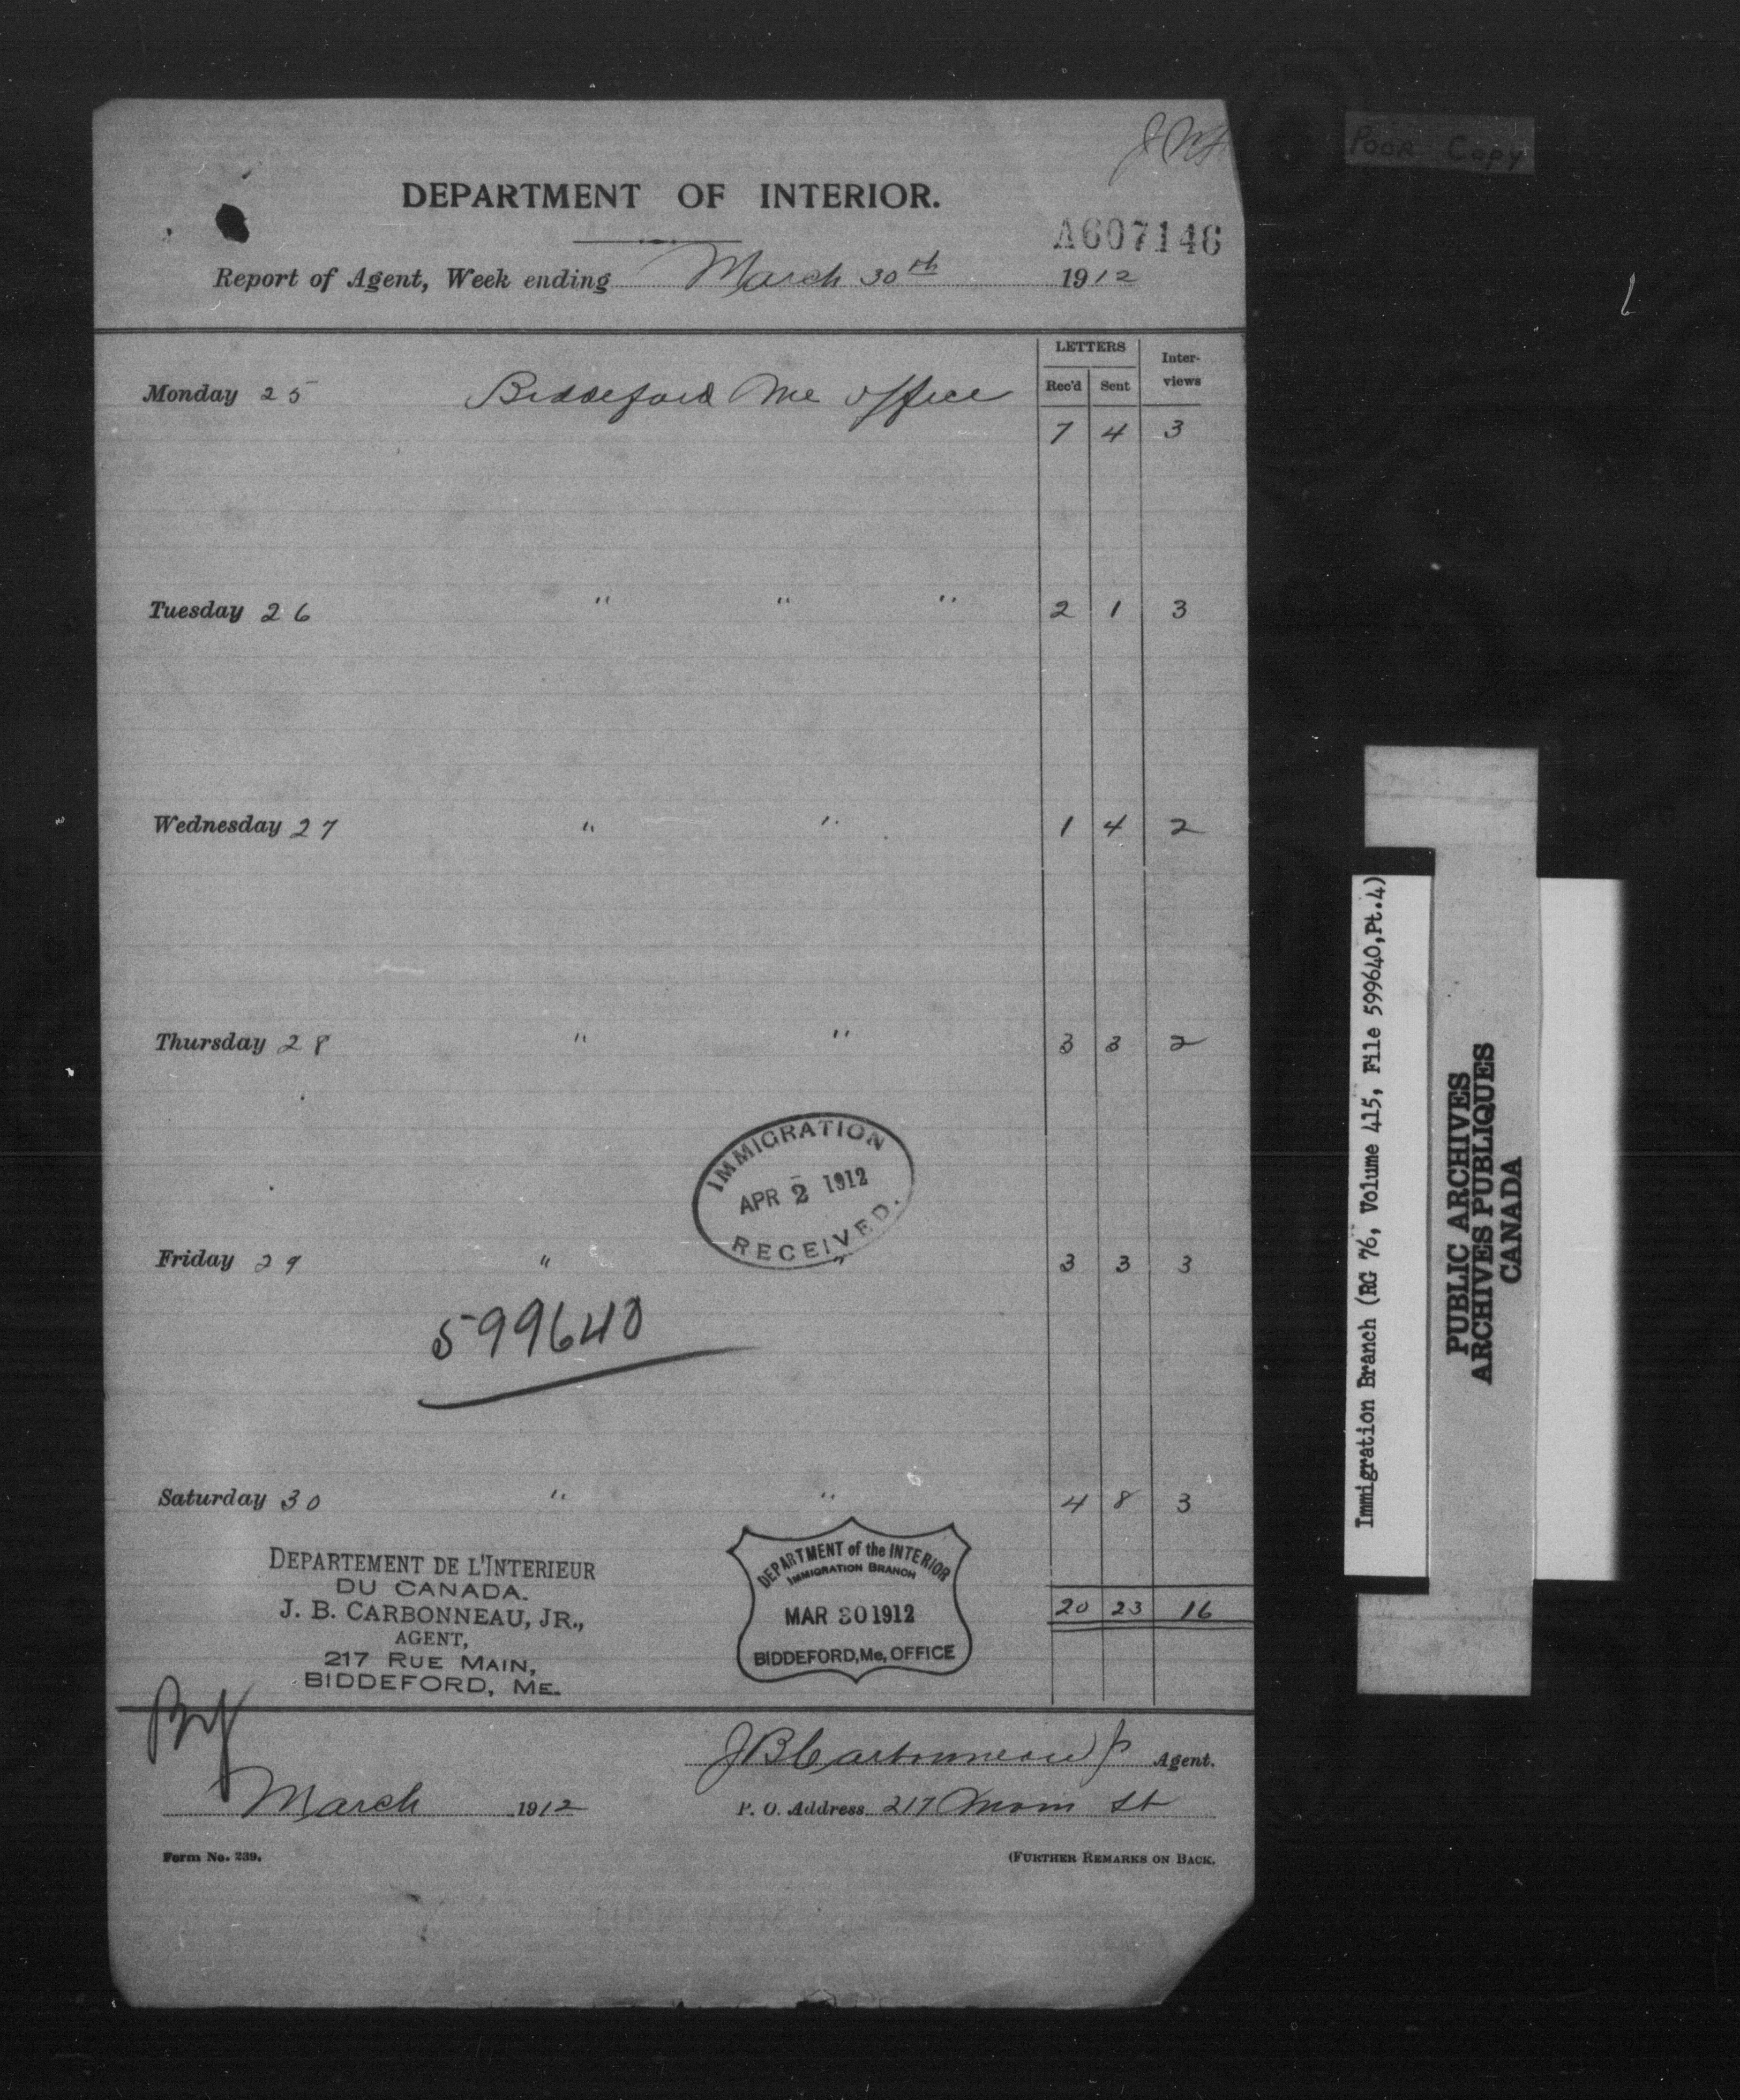 Poor Copy
DEPARTMENT OF INTERIOR.
A607146
Report of Agent, Week ending March 30th 1912
LETTERS
Inter-
views
Rec'd Sent
Monday 25 Biddeford Me office
7 4 3
Tuesday 26 " " " 2 1 3
Wednesday 27 " " 1 4 2
Thursday 28 " " 3 3 2
IMMIGRATION
APR 2 1912
RECEIVED.
Friday 29 " " 3 3 3
599640
Saturday 30 " " 4 8 3
DEPARTEMENT DE L'INTERIEUR
DU CANADA.
J. B. CARBONNEAU, JR.,
AGENT,
217 RUE MAIN,
BIDDEFORD, ME.
DEPARTMENT of the INTERIOR
IMMIGRATION BRANCH
MAR 30 1912
BIDDEFORD, Me, OFFICE
20 23 16
J B Carbonneau Jr Agent.
March 1912 P. O. Address 217 Main St
Form No. 239. (FURTHER REMARKS ON BACK.
Immigration Branch (RG 76, Volume 415, File 599640,Pt.4)
PUBLIC ARCHIVES
ARCHIVES PUBLIQUES
CANADA